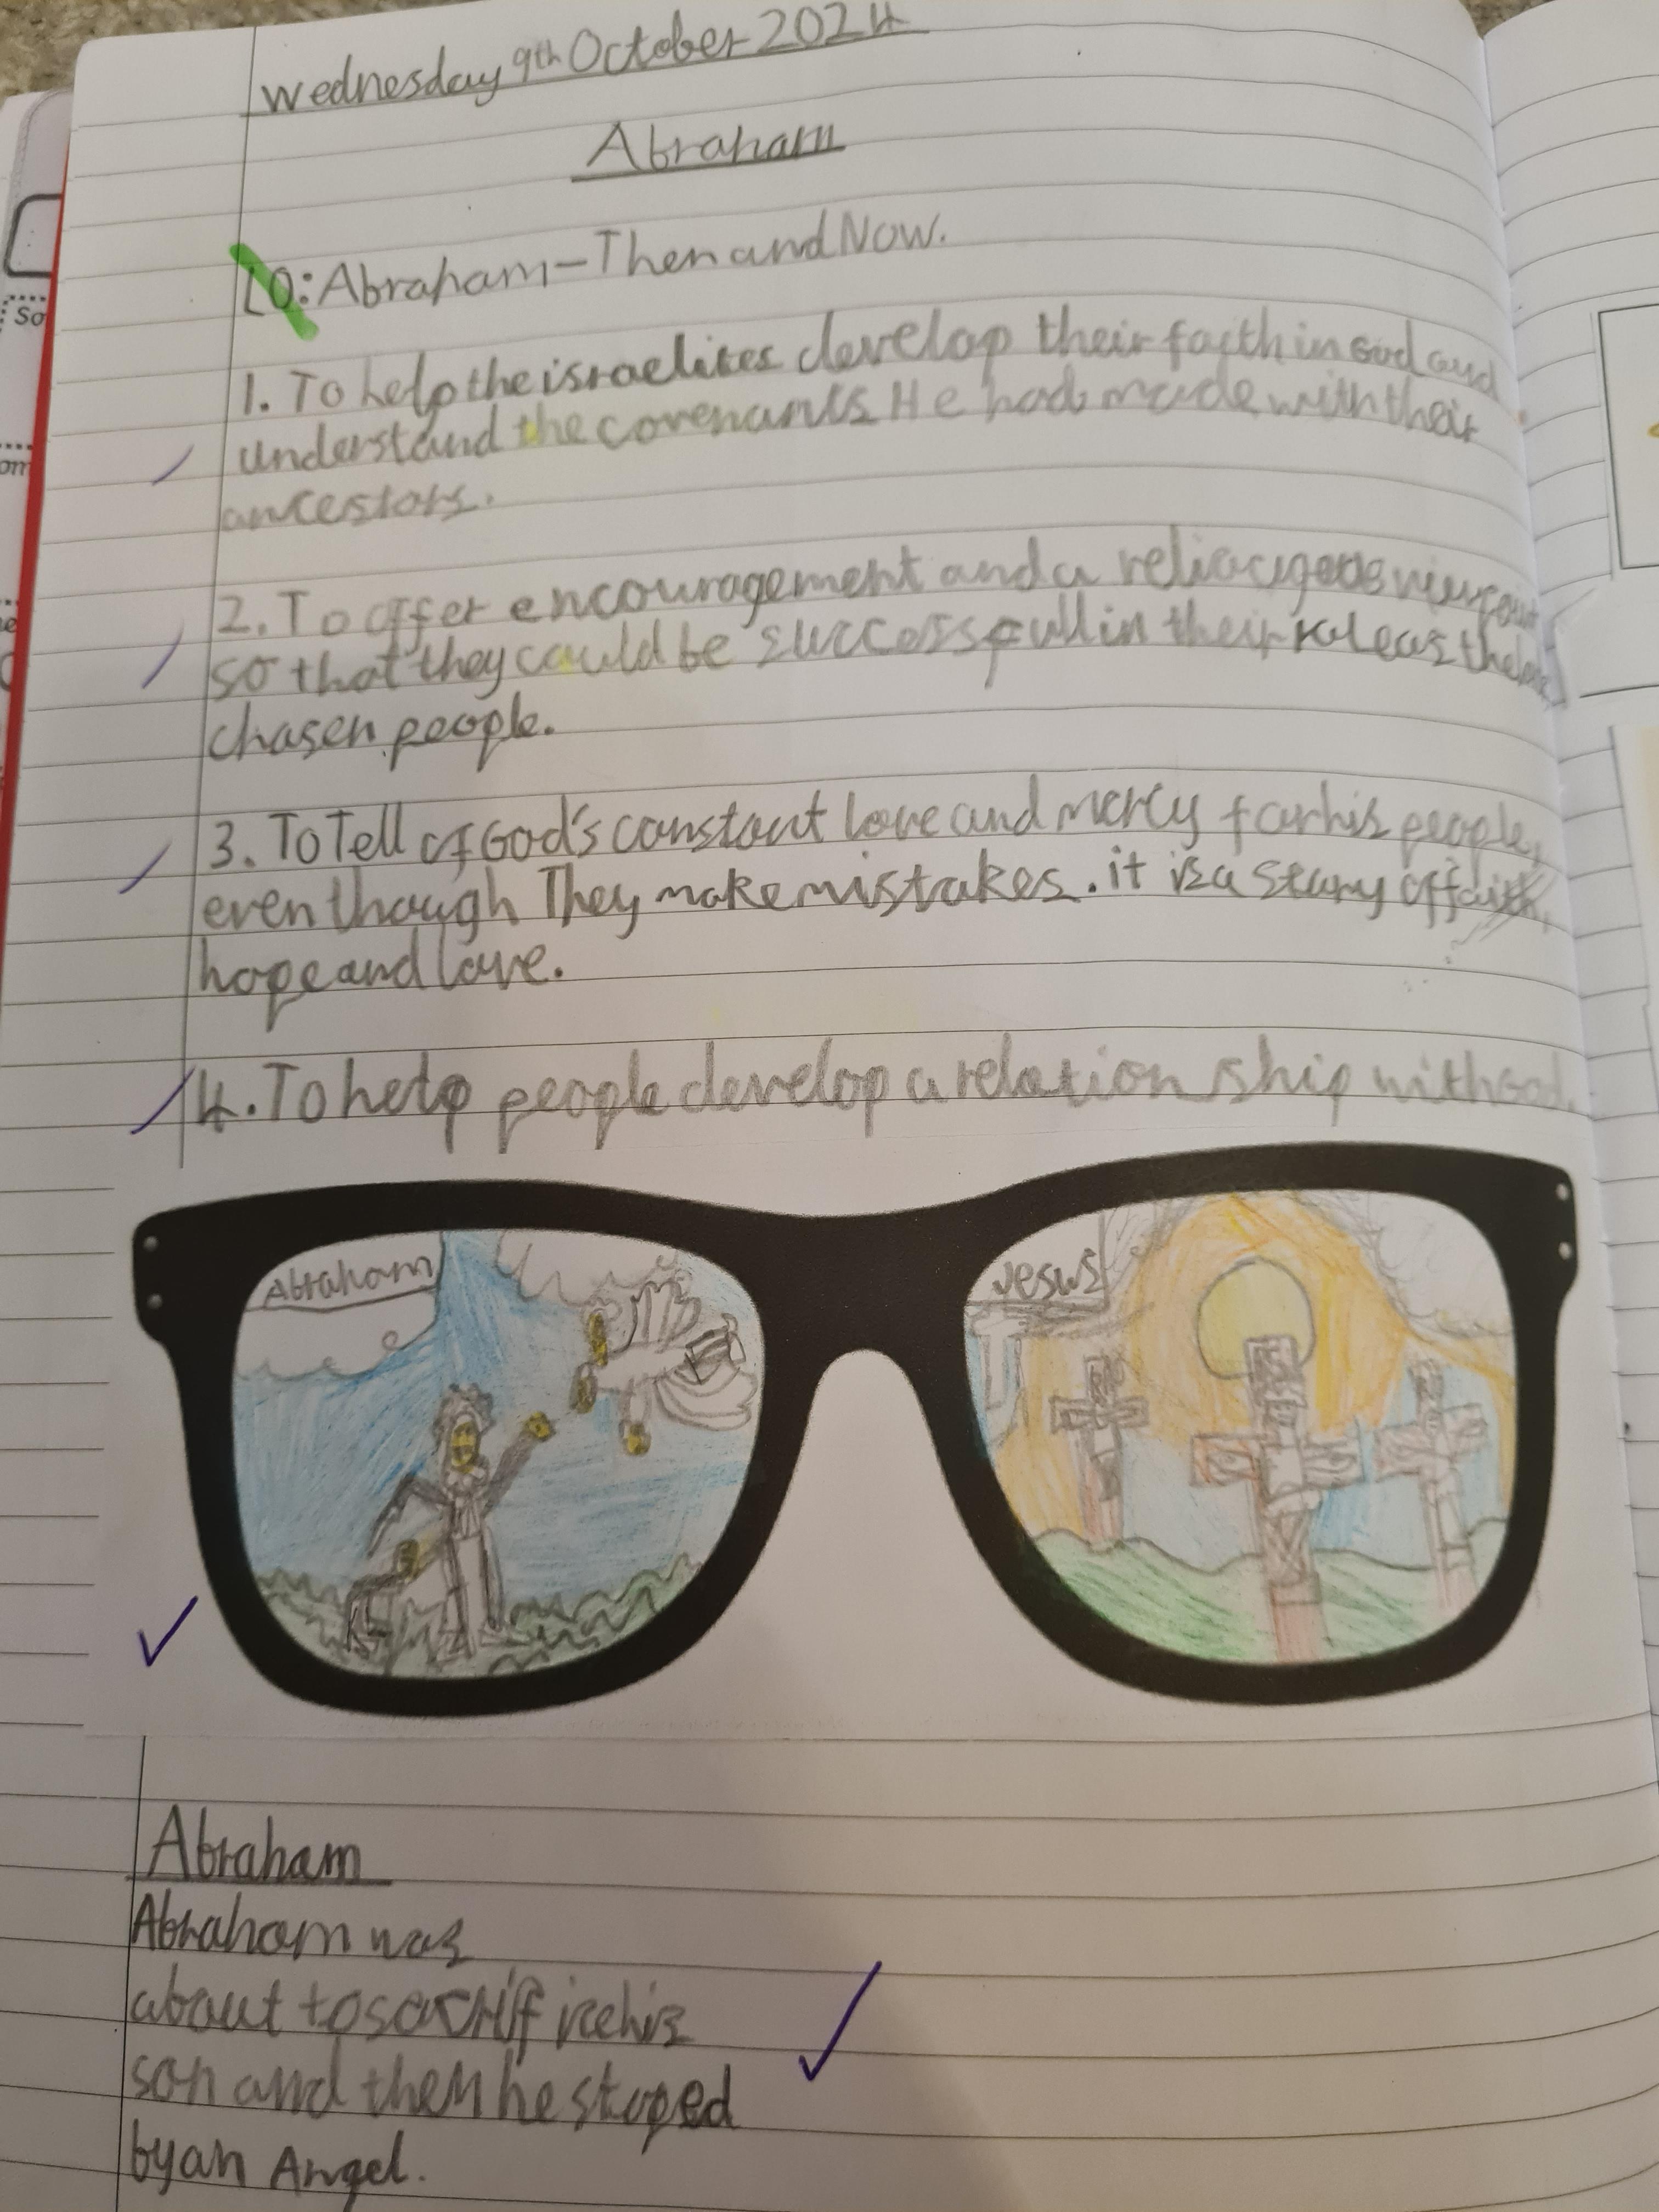 Wednesday 9th October 2024
Abraham
LO: Abraham - Then and Now.
1. To help the israelites develop their faith in God and
understand the covenants He had made with their
ancestors.
2. To offer encouragement and a
so that they could be successfull in their role as the
chosen people.
3. To Tell of God's constant love and mercy for his people,
even though They make mistakes. it is a story of faith,
hope and love.
4. To help people develop a relation ship with God.
Abraham
Jesus
Abraham
Abraham was
about to sacrifice his
son and then he stoped
by an Angel.
So
om